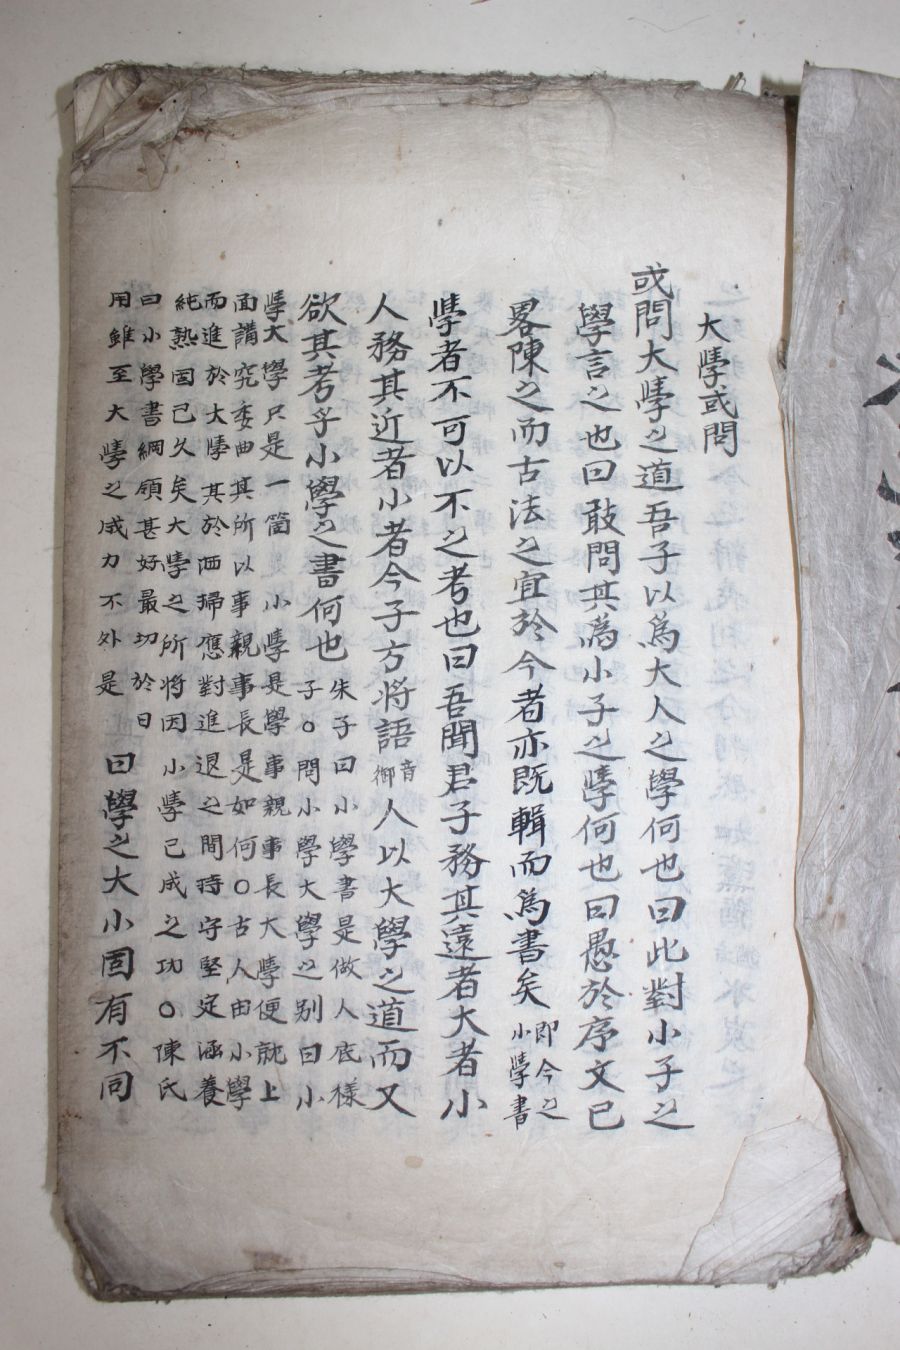 大學或問
或問大學之道吾子以爲大人之學何也曰此對小子之
學言之也曰敢問其爲小子之學何也曰愚於序文已
畧陳之而古法之宜於今者亦旣輯而爲書矣即今之小學書
學者不可以不之考也曰吾聞君子務其遠者大者小
人務其近者小者今子方將語音御人以大學之道而又
欲其考乎小學之書何也朱子曰小學書是做人底樣
子○問小學大學之别曰小
學大學只是一箇小學是學事親事長大學便就上
面講究委曲其所以事親事長是如何○古人由小學
而進於大學其於洒掃應對進退之間持守堅定涵養
純熟固已久矣大學之所將因小學已成之功○陳氏
曰小學書綱領甚好最切於日
用雖至大學之成力不外是曰學之大小固有不同